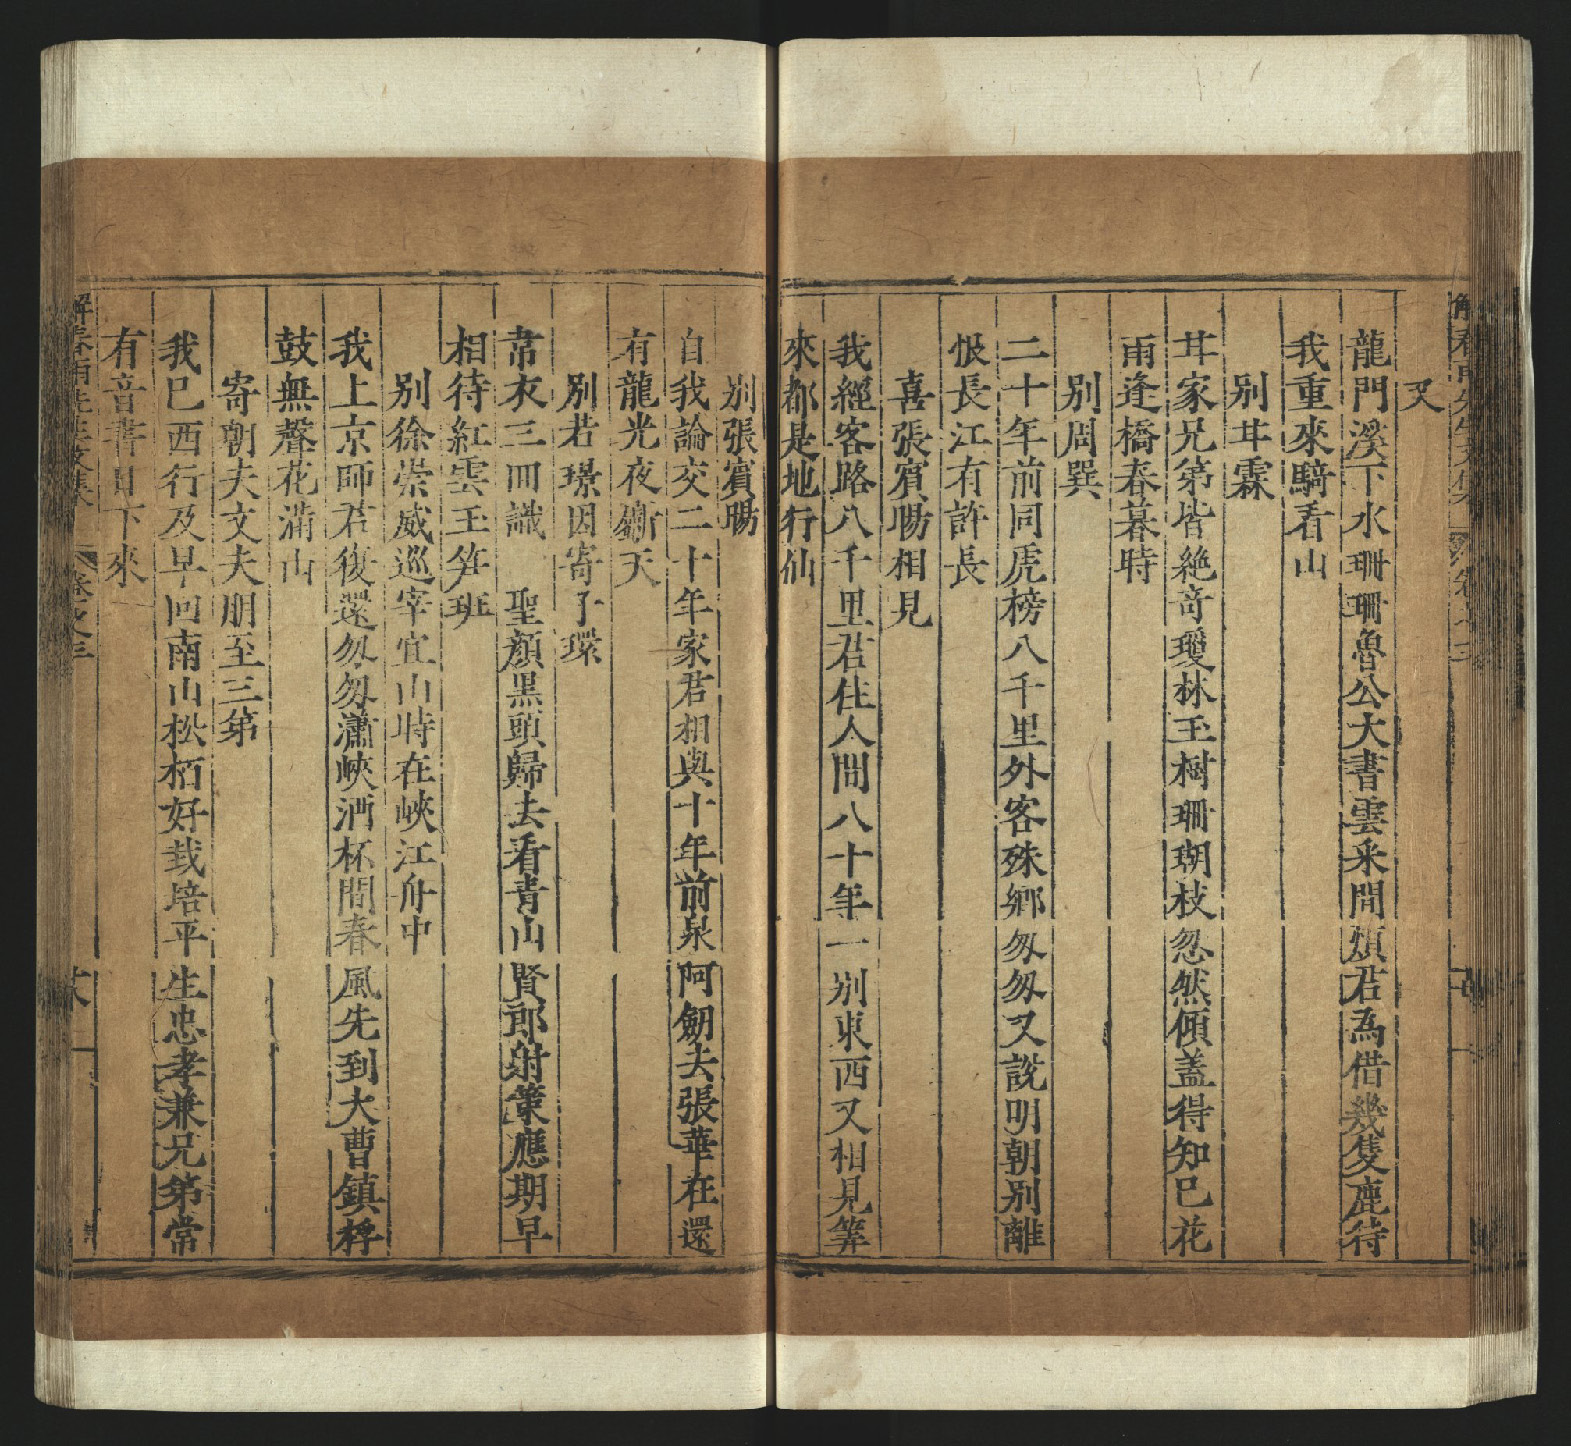 又
龍門溪下水珊珊魯公大書雲采間煩君為借幾隻鹿待
我重來騎看山
別甘霖
甘家兄第皆絶竒瓊林玉樹珊瑚枝忽然傾蓋得知巳花
雨逢橋春暮時
別周巽
二十年前同虎榜八千里外客殊鄉匆匆又說明朝別離
恨長江有許長
喜張賔暘相見
我經客路八千里君住人間八十年一别東西又相見筭
來都是地行仙
別張賔暘
自我論交二十年家君相與十年前泉阿劒去張華在還
有龍光夜斸天
別若璟因寄子環
常衣三回識 聖顏黑頭歸去看青山賢郎射策應期早
相待紅雲玉笋班
別徐崇威巡宰宜山時在峽江舟中
我上京師君復還匆匆瀟峽酒杯間春風先到大曹鎮桴
鼓無聲花滿山
寄朝夫文夫朋至三第
我巳西行及早回南山松栢好栽培平生忠孝兼兄第常
有音書日下來
解春雨先生文集 卷之三